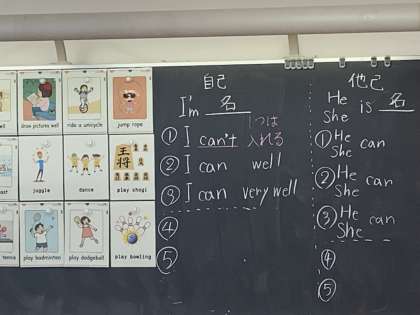 draw pictures well
ride a unicycle
jump rope
juggle
dance
王将
play shogi
tennis
play badminton
play dodgeball
play bowling
自己
I'm 名
① I can't 1つは入れる
② I can well
③ I can very well
④
⑤
他己
He
She is 名
① He
She can
② He
She can
③ He
She can
④
⑤